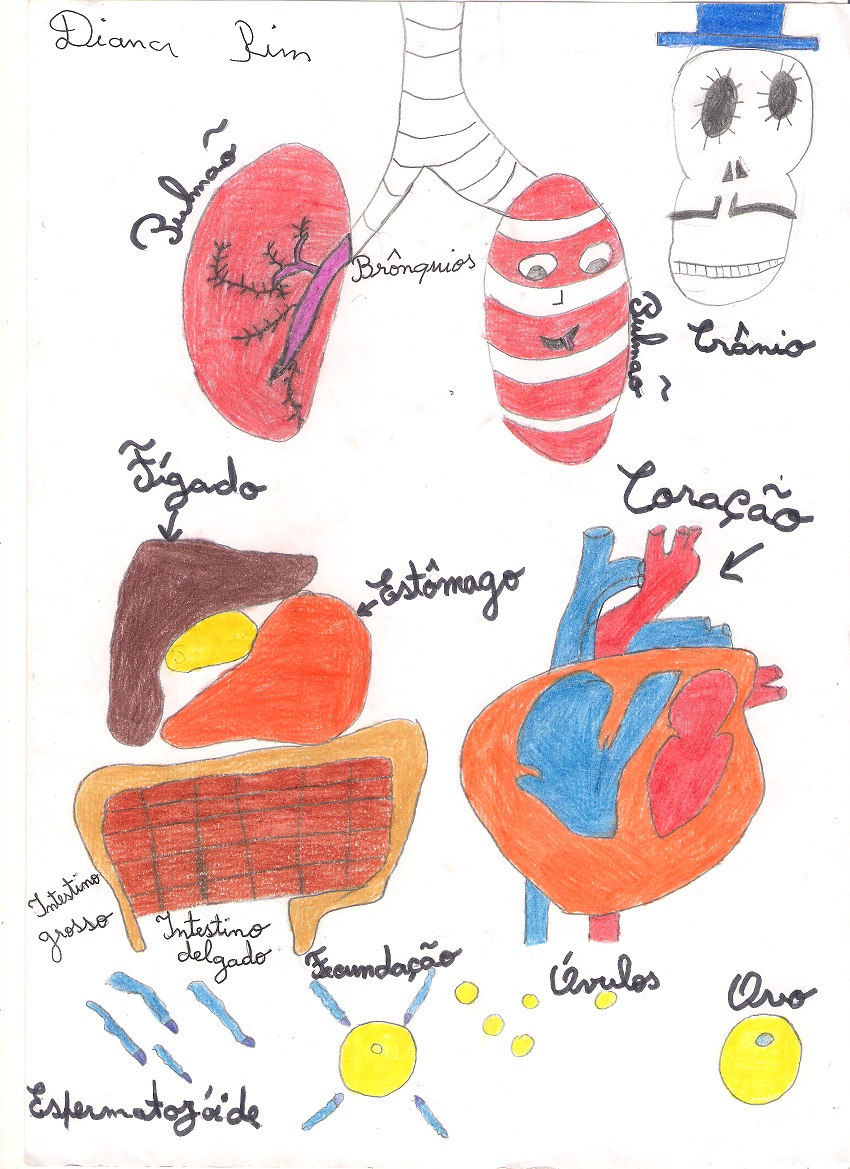 Diana Rim
Pulmão
Brônquios
Pulmão
Crânio
Fígado
Coração
Estômago
Intestino
grosso
Intestino
delgado
Fecundação
Óvulos
Ovo
Espermatozóide